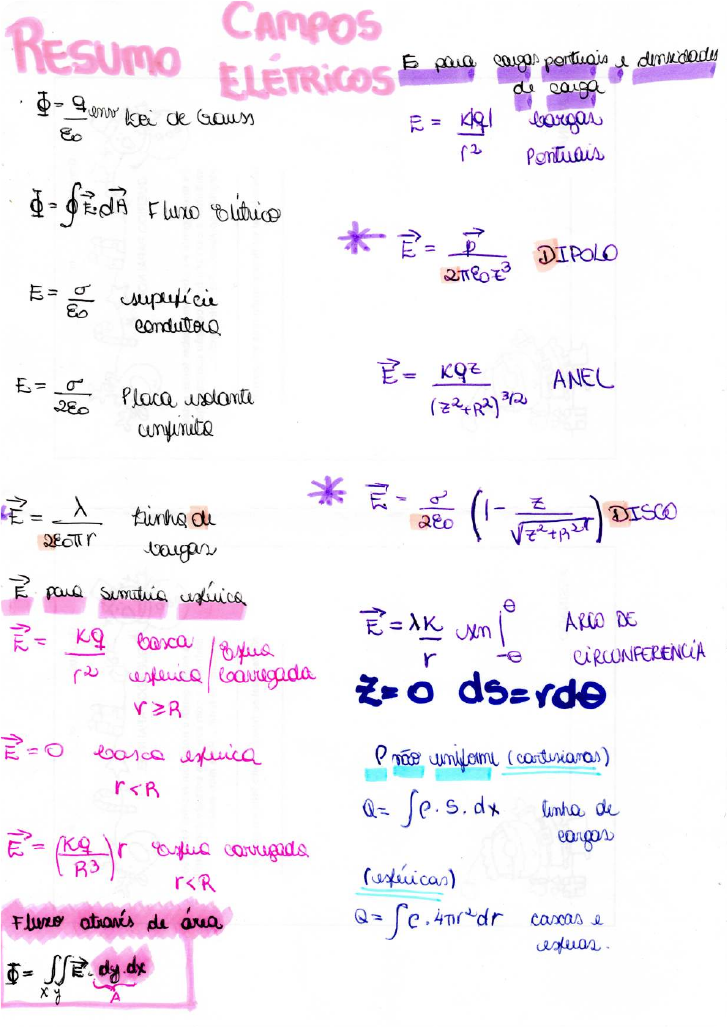 RESUMO CAMPOS ELÉTRICOS
Φ = q env / ε0 Lei de Gauss
Φ = ∮ E⃗. dA⃗ Fluxo Elétrico
E = σ / ε0 superfície
condutora
E = σ / 2ε0 Placa isolante
infinita
E⃗ = λ / 2ε0πr Linha de
cargas
E⃗ para simetria esférica
E⃗ = KQ / r² Casca esférica / Esfera Carregada
r ≥ R
E⃗ = 0 casca esférica
r < R
E⃗ = (KQ / R³) r Esfera carregada
r < R
Fluxo através de área
Φ = ∬ E⃗. dy.dx
x y A
E para cargas pontuais e densidades
de carga
E = K|q| / r² Cargas
Pontuais
* E⃗ = p⃗ / 2πε0z³ DIPOLO
E⃗ = KqZ / (Z²+R²)^3/2 ANEL
* E⃗ = σ / 2ε0 (1 - Z / √Z²+R²) DISCO
E⃗ = λK / r sen |θ -θ ARCO DE
CIRCUNFERÊNCIA
Z=0 ds=rdθ
ρ não uniforme (cartesianas)
Q = ∫ρ. S. dx linha de
cargas
(esféricas)
Q = ∫ρ. 4πr² dr cascas e
esferas.